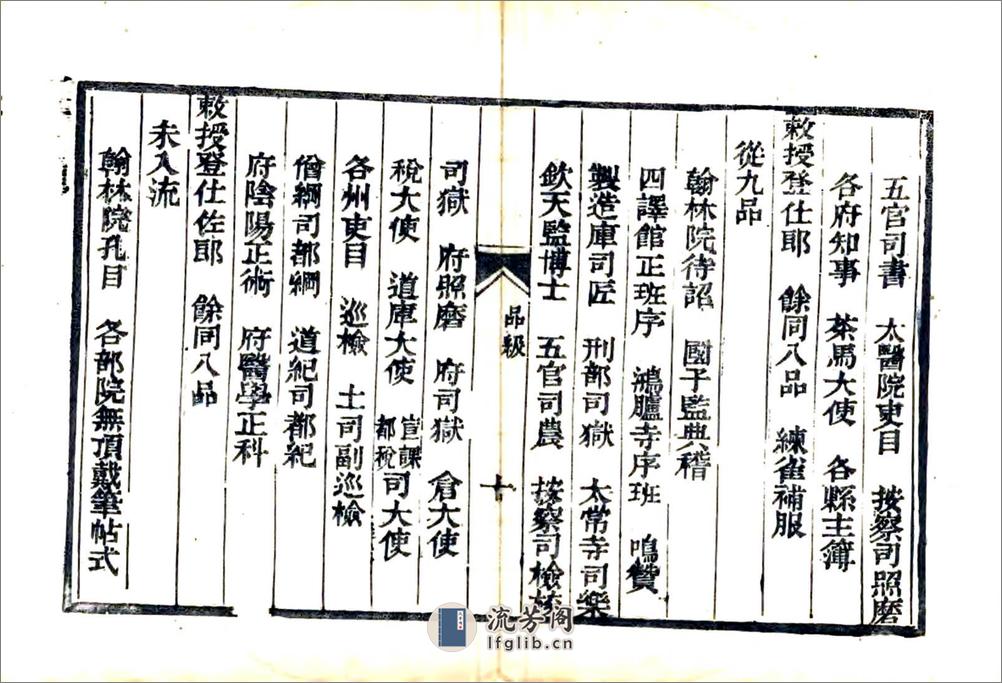 五官司書　太醫院吏目　按察司照磨
各府知事　茶馬大使　各縣主簿
敕授登仕郎　餘同八品　練雀補服
從九品
翰林院待詔　國子監典稽
四譯館正班序　鴻臚寺序班　鳴贊
製造庫司匠　刑部司獄　太常寺司樂
欽天監博士　五官司農　按察司檢校
品級
十
司獄　府照磨　府司獄　倉大使
稅大使　道庫大使　宣課都稅司大使
各州吏目　巡檢　土司副巡檢
僧綱司都綱　道紀司都紀
府陰陽正術　府醫學正科
敕授登仕佐郎　餘同八品
未入流
翰林院孔目　各部院無頂戴筆帖式
流芳閣
lfglib.cn